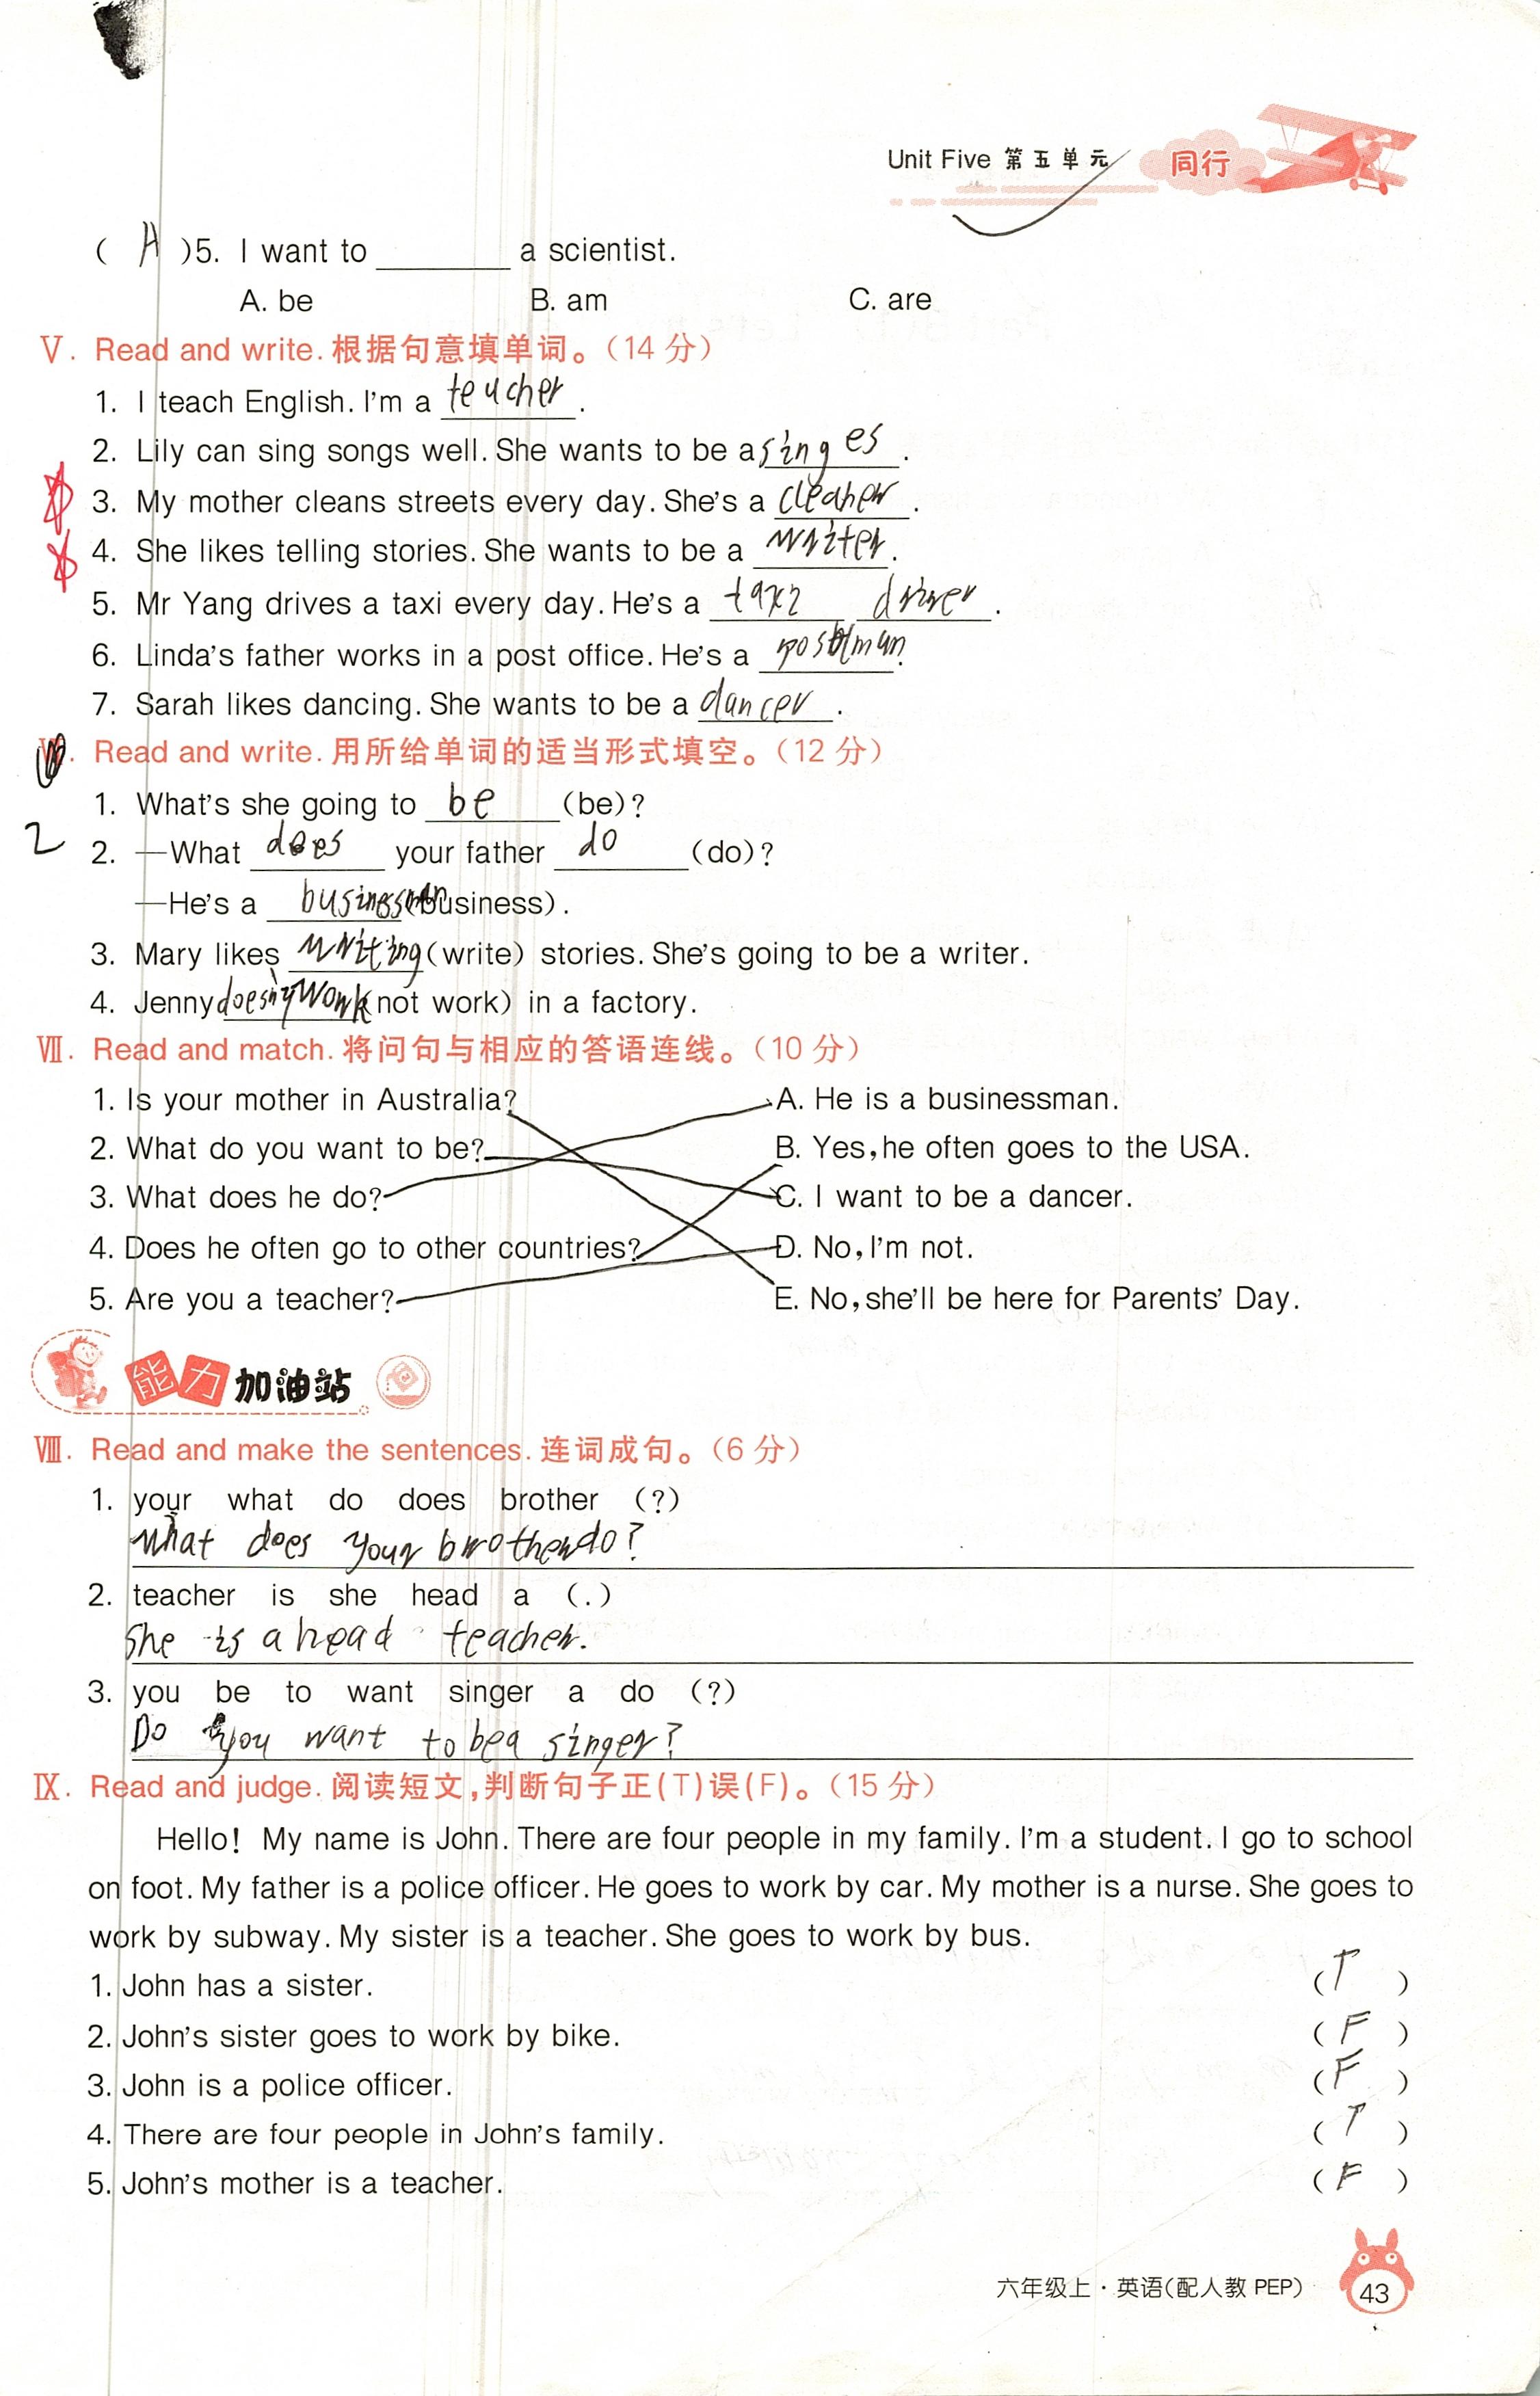 Unit Five 第五单元 同行
( A )5. I want to ________ a scientist.
A. be B. am C. are
Ⅴ. Read and write. 根据句意填单词。(14 分)
1. I teach English. I'm a teacher.
2. Lily can sing songs well. She wants to be a singes.
3. My mother cleans streets every day. She's a cleaner.
4. She likes telling stories. She wants to be a writer.
5. Mr Yang drives a taxi every day. He's a taxi driver.
6. Linda's father works in a post office. He's a postman.
7. Sarah likes dancing. She wants to be a dancer.
Ⅵ. Read and write. 用所给单词的适当形式填空。(12 分)
1. What's she going to be (be)?
2 2. —What does your father do (do)?
—He's a businessman (business).
3. Mary likes writing (write) stories. She's going to be a writer.
4. Jenny doesn't work (not work) in a factory.
Ⅶ. Read and match. 将问句与相应的答语连线。(10 分)
1. Is your mother in Australia? A. He is a businessman.
2. What do you want to be? B. Yes, he often goes to the USA.
3. What does he do? C. I want to be a dancer.
4. Does he often go to other countries? D. No, I'm not.
5. Are you a teacher? E. No, she'll be here for Parents' Day.
能力加油站
Ⅷ. Read and make the sentences. 连词成句。(6 分)
1. your what do does brother (?)
What does your brother do?
2. teacher is she head a (.)
She is a head teacher.
3. you be to want singer a do (?)
Do you want to be a singer?
Ⅸ. Read and judge. 阅读短文,判断句子正(T)误(F)。(15 分)
Hello! My name is John. There are four people in my family. I'm a student. I go to school
on foot. My father is a police officer. He goes to work by car. My mother is a nurse. She goes to
work by subway. My sister is a teacher. She goes to work by bus.
1. John has a sister. ( T )
2. John's sister goes to work by bike. ( F )
3. John is a police officer. ( F )
4. There are four people in John's family. ( T )
5. John's mother is a teacher. ( F )
六年级上·英语(配人教 PEP) 43